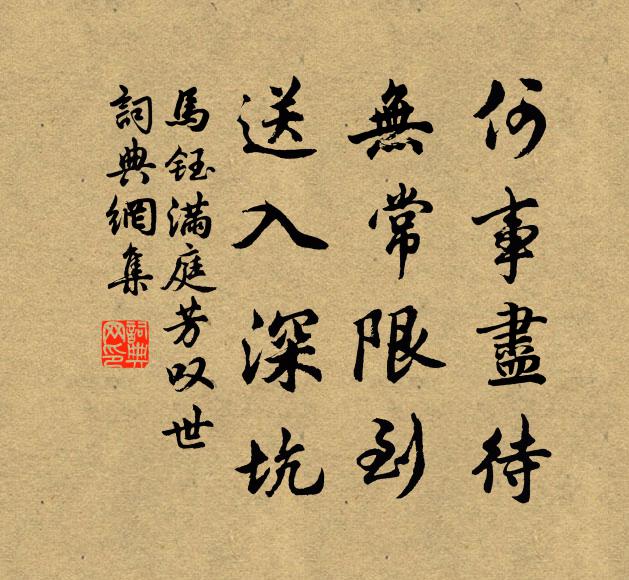 何事盡待
無常限到
送入深坑
馬鈺满庭芳叹世
詞典網集
詞典
网印